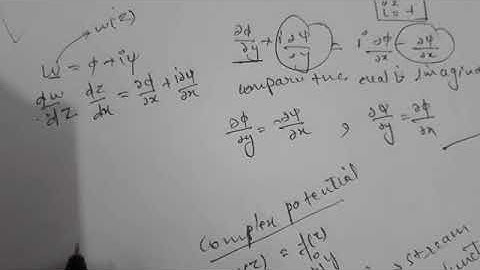 w(z)
w = ϕ + iψ
dw/dz dz/dx = ∂ϕ/∂x + i∂ψ/∂x
i² = -1
∂ϕ/∂y + i∂ψ/∂y = i ∂ϕ/∂x - ∂ψ/∂x
compare the real & imagin
∂ϕ/∂y = -∂ψ/∂x , ∂ψ/∂y = ∂ϕ/∂x
complex potential
(z) = f(z)
stream